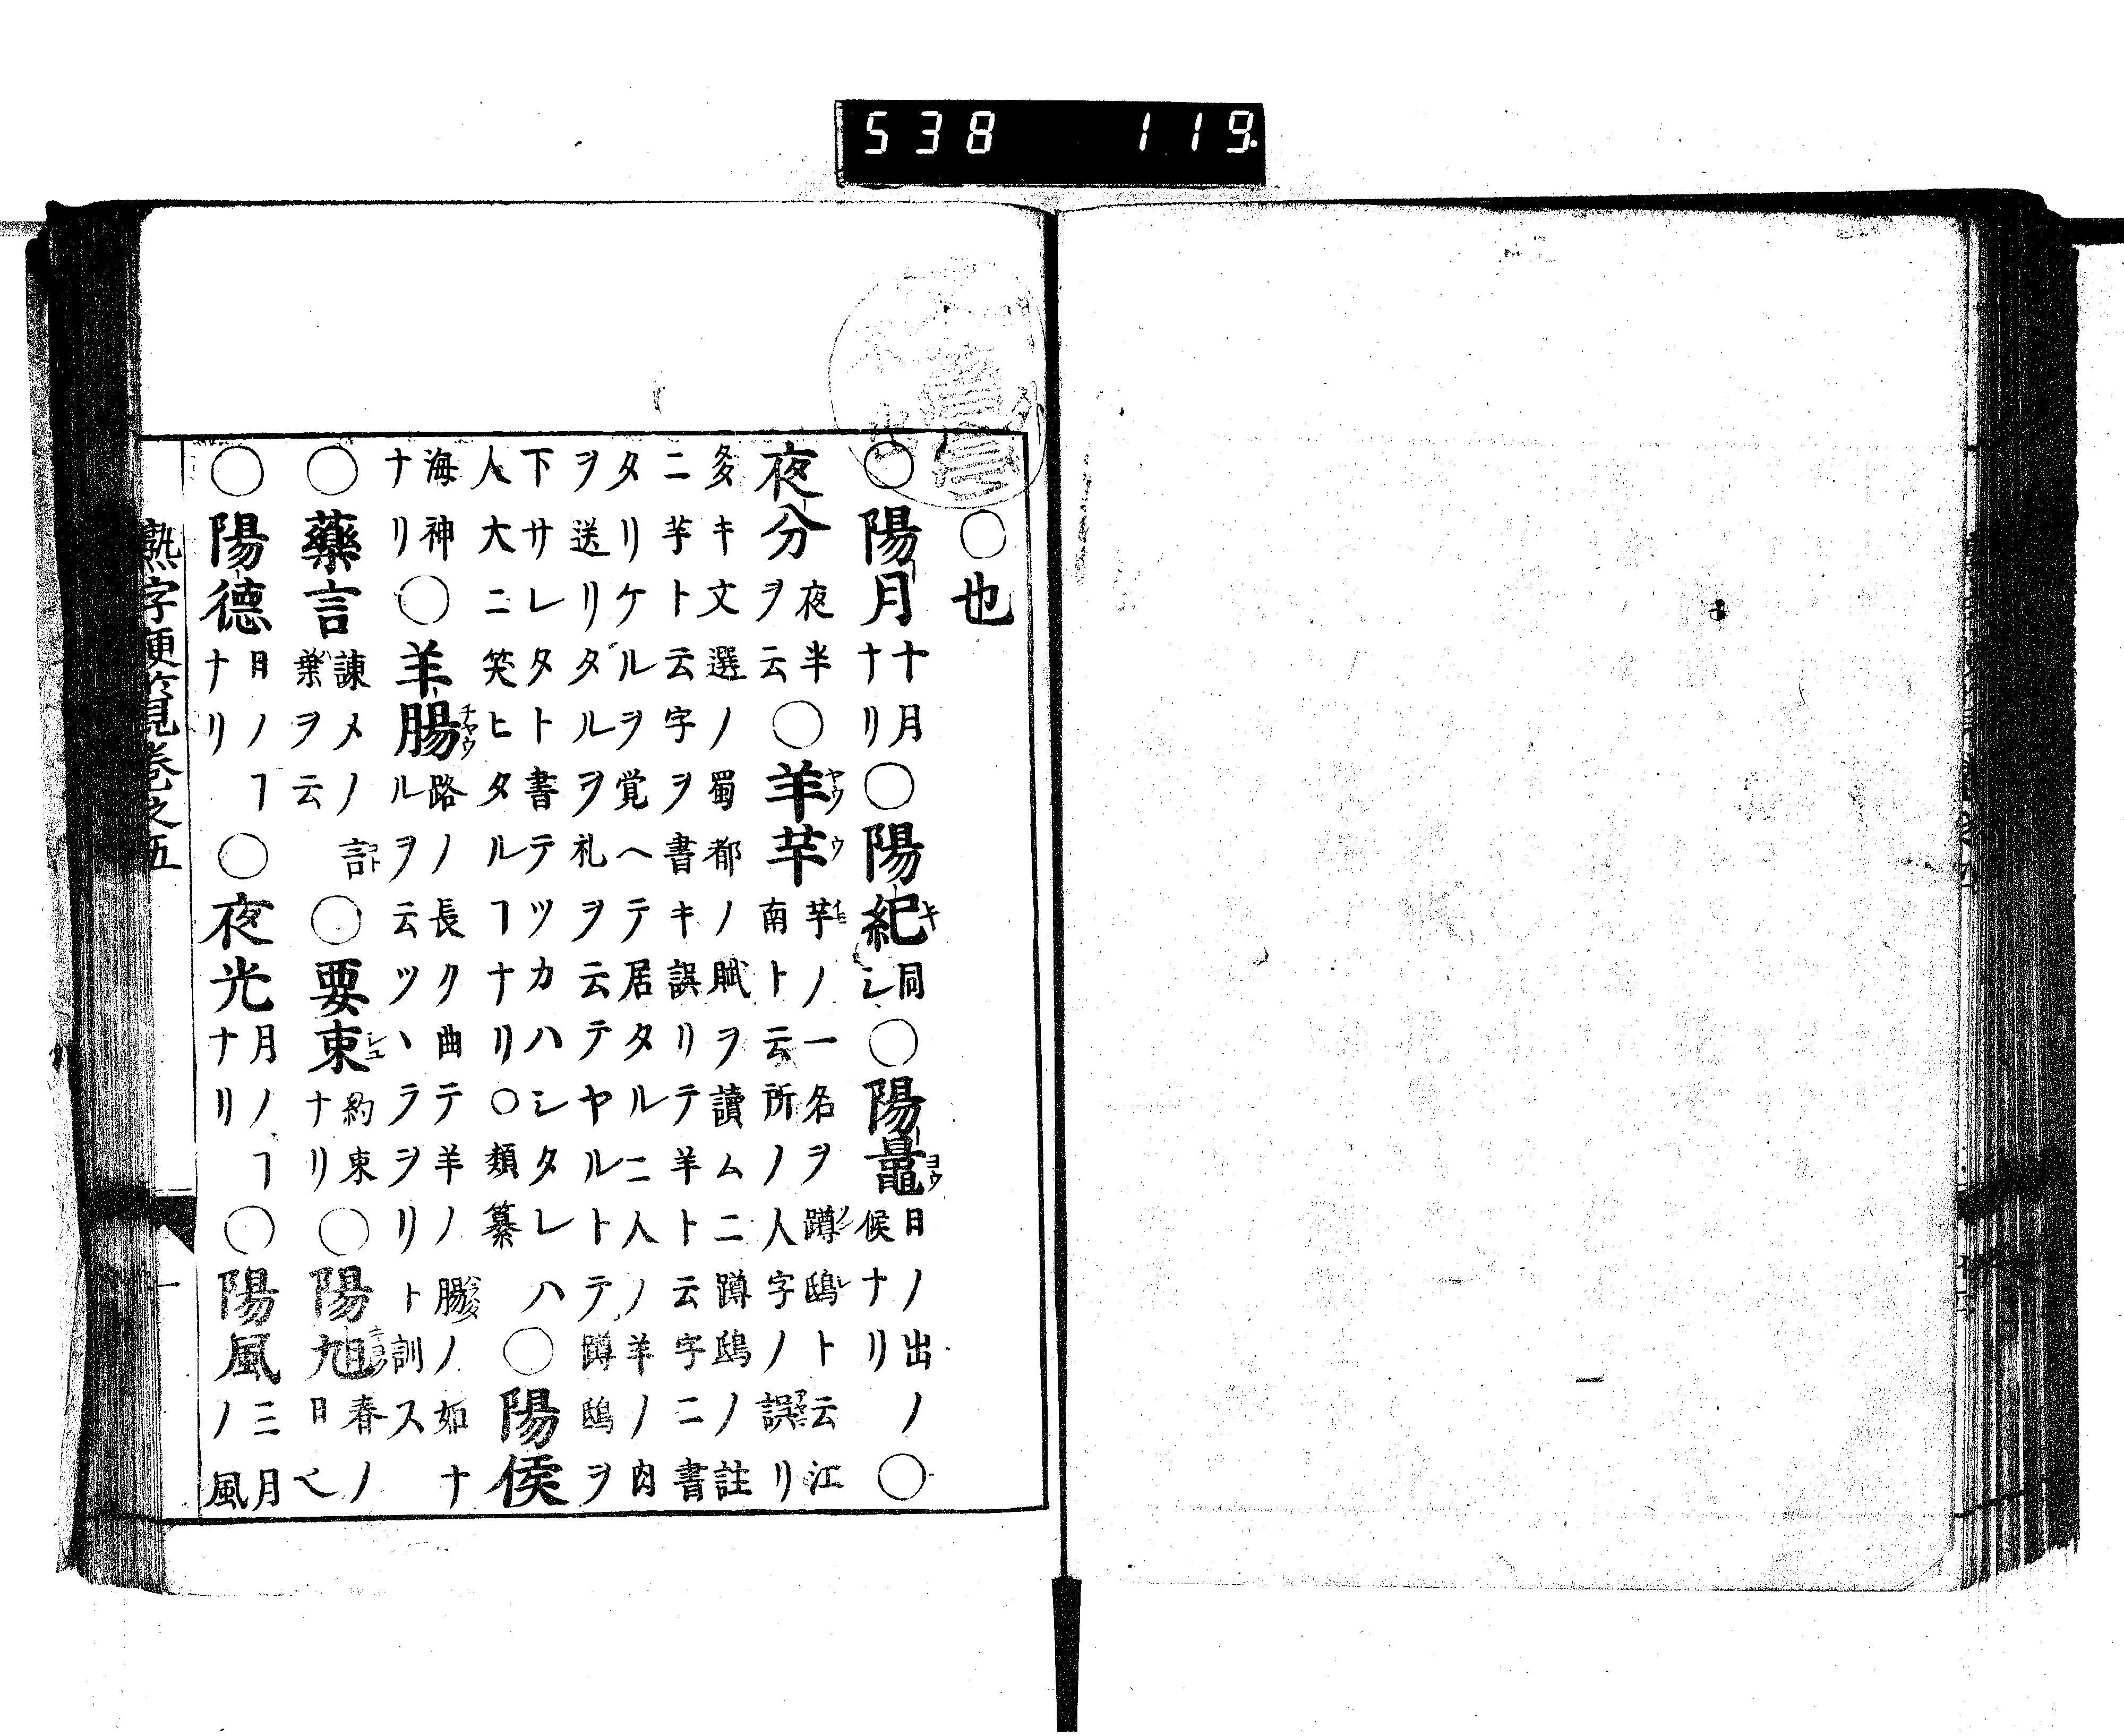 538 119
○也
○陽月十月ナリ○陽紀キ同シ○陽鼂ヨウ日ノ出ノ候ナリ○
夜分夜半ヲ云○羊芋ヤウウ芋ノ一名ヲ蹲鴟ト云江南ト云所ノ人字ノ誤リ
多キ文選ノ蜀都ノ賦ヲ讀ムニ蹲鴟ノ註
ニ芋ト云字ヲ書キ誤リテ羊ト云字ニ書
タリケルヲ覚ヘテ居タルニ人ノ羊ノ肉
ヲ送リタルヲ礼ヲ云テヤルトテ蹲鴟ヲ
下サレタト書テツカハシタレハ
人大ニ笑ヒタルヿナリ○類纂○陽侯
海神ナリ○羊腸チヤウ路ノ長ク曲テ羊ノ腸ノ如ナルヲ云ツヽラヲリト訓ス
○藥言諫メノ言葉ヲ云○要束約束ナリ○陽旭春ノ日
○陽德日ノヿナリ○夜光月ノヿナリ○陽風三月ノ風
熟字便覧巻之五 一